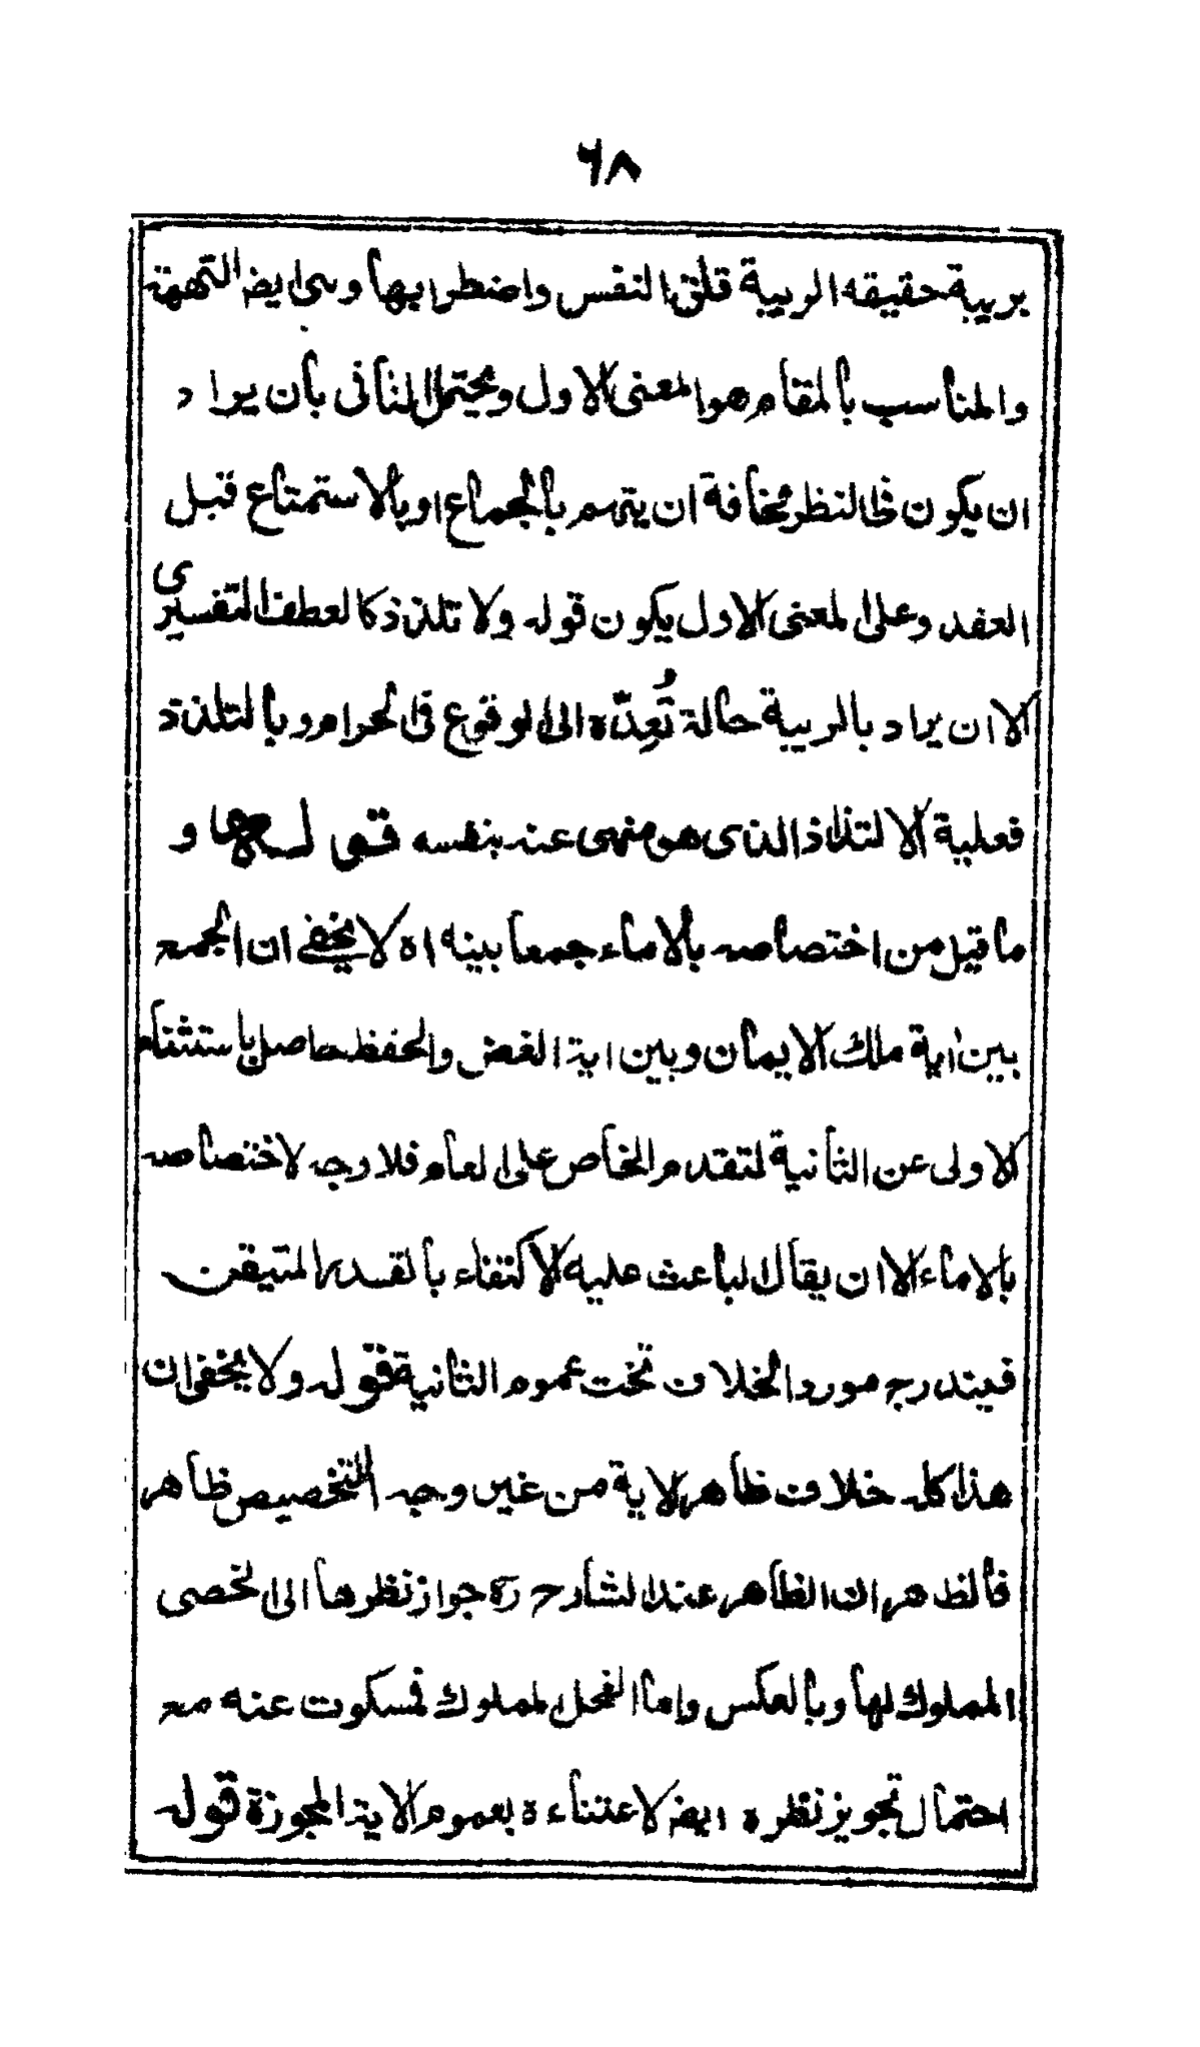 ٦٨
بريبة حقيقه الريبة قلق النفس واضطرابها وهى ايضا التهمة
والمناسب بالمقام هو المعنى الاول ويحتمل الثانى بأن يراد
ان يكون فى النظر مخافة ان يتهم بالجماع او بالاستمتاع قبل
العقد وعلى المعنى الاول يكون قوله ولا تلذذ كالعطف التفسيرى
الا ان يراد بالريبة حالة تُعِدّه الى الوقوع فى الحرام وبالتلذذ
فعلية الالتذاذ الذى هو منهى عنه بنفسه قوله و
ما قيل من اختصاصه بالاماء جمعا بينه اه لا يخفى ان الجمع
بين اية ملك الايمان وبين اية الغض والحفظ حاصل باستثناء
الاولى عن الثانية لتقدم الخاص على العام فلا وجه لاختصاصه
بالاماء الا ان يقال الباعث عليه الاكتفاء بالقدر المتيقن
فيندرج مورد الخلاف تحت عموم الثانية قوله ولا يخفى ان
هذا كله خلاف ظاهر الاية من غير وجه التخصيص ظاهر
فالظ هر ان الظاهر عند الشارح ره جواز نظرها الى الخصى
المملوك لها وبالعكس واما الفحل المملوك فمسكوت عنه مع
احتمال تجويز نظره ايضا لاعتناءه بعموم الاية المجوزة قوله